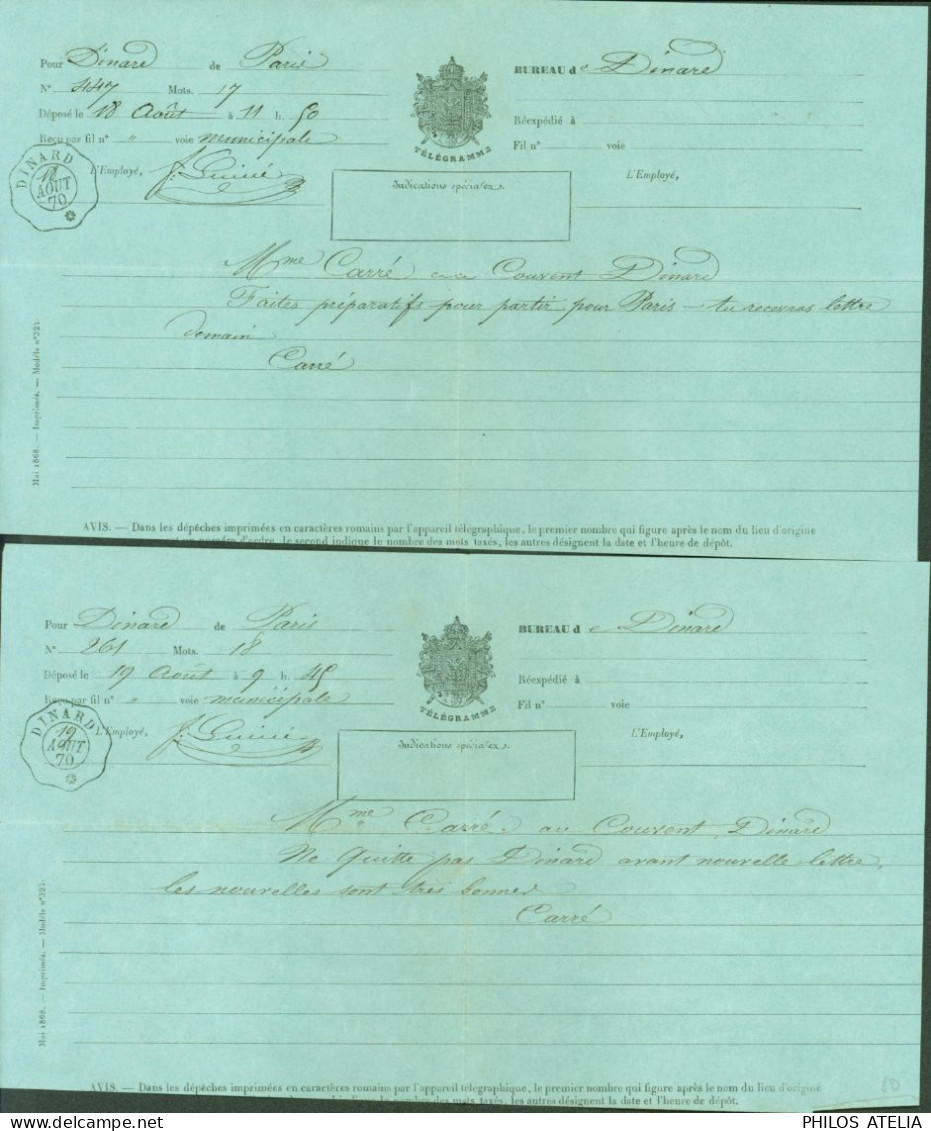 Pour Dinard de Paris
N° 447 Mots. 17
Déposé le 18 Août à 11 h. 50
Reçu par fil n° " voie municipale
L'Employé,
TÉLÉGRAMME
BUREAU de Dinard
Réexpédié à
Fil n° voie
L'Employé,
DINARD
18
AOUT
70
Indications spéciales.
Mme Carré au Couvent Dinard
Faites préparatifs pour partir pour Paris - tu recevras lettre
demain
Carré
Mai 1868. — Imprimés. — Modèle n° 321.
AVIS. — Dans les dépêches imprimées en caractères romains par l'appareil télégraphique, le premier nombre qui figure après le nom du lieu d'origine
numéro d'ordre, le second indique le nombre des mots taxés, les autres désignent la date et l'heure de dépôt.
Pour Dinard de Paris
N° 261 Mots. 18
Déposé le 19 Août à 9 h. 45
Reçu par fil n° " voie municipale
L'Employé,
TÉLÉGRAMME
BUREAU de Dinard
Réexpédié à
Fil n° voie
L'Employé,
DINARD
19
AOUT
70
Indications spéciales.
Mme Carré au Couvent, Dinard
Ne quitte pas Dinard avant nouvelle lettre,
les nouvelles sont très bonnes
Carré
Mai 1868. — Imprimés. — Modèle n° 321.
AVIS. — Dans les dépêches imprimées en caractères romains par l'appareil télégraphique, le premier nombre qui figure après le nom du lieu d'origine
indique le nombre des mots taxés, les autres désignent la date et l'heure de dépôt.
PHILOS ATELIA